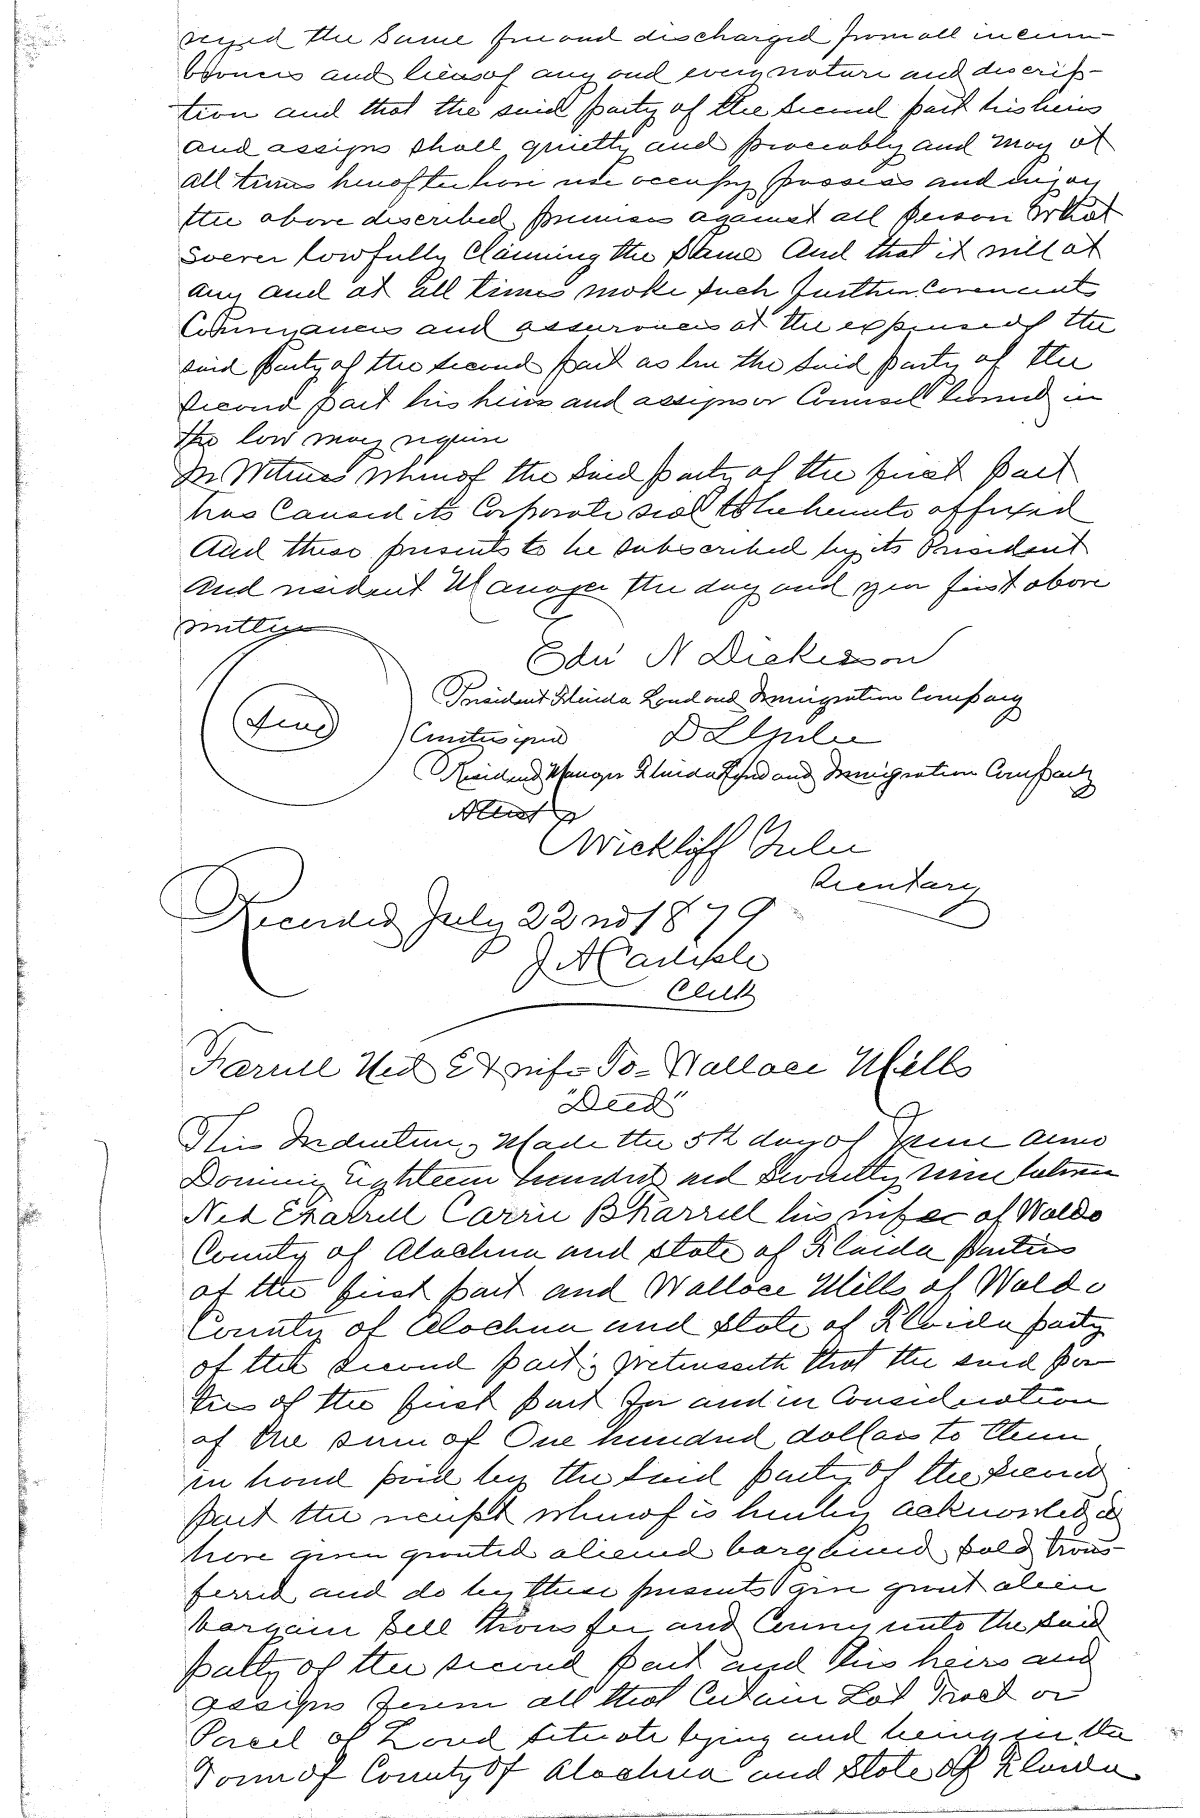 veyed the same free and discharged from all incum-
brances and liens of any and every nature and descrip-
tion and that the said party of the second part his heirs
and assigns shall quietly and peaceably and may at
all times hereafter have use occupy possess and enjoy
the above described premises against all person what
soever lawfully claiming the same And that it will at
any and at all times make such further covenants
Conveyances and assurances at the expense of the
said party of the second part as he the said party of the
second part his heirs and assigns or Counsel learned in
the law may require
In Witness Whereof the said party of the first part
has Caused its Corporate seal to be hereunto affixed
And these presents to be subscribed by its President
and resident Manager the day and year first above
written
Edw N Dickerson
President Florida Land and Immigration Company
Seal
Countersigned D L Yulee
Resident Manager Florida Land and Immigration Company
Attest
Wickliff Yulee
Secretary
Recorded July 22nd 1879
J A Carlisle
Clerk
Farrell Ned E & wife - To - Wallace Mills
"Deed"
This Indenture, Made the 5th day of June Anno
Domini Eighteen hundred and Seventy nine between
Ned E Farrell Carrie B Farrell his wife of Waldo
County of Alachua and State of Florida parties
of the first part and Wallace Mills of Waldo
County of Alachua and State of Florida party
of the second part; Witnesseth that the said par
ties of the first part for and in Consideration
of the sum of One hundred dollars to them
in hand paid by the said party of the second
part the receipt whereof is hereby acknowledged
have given granted aliened bargained sold trans-
ferred and do by these presents give grant alien
bargain sell transfer and Convey unto the said
party of the second part and his heirs and
assigns forever all that Certain Lot Tract or
Parcel of Land situate lying and being in the
Town of County of Alachua and State of Florida